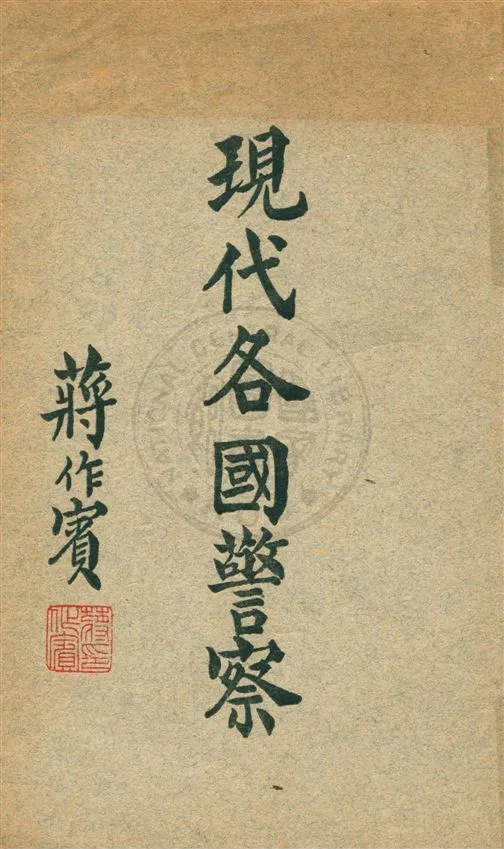 現代各國警察
蔣作賓
蔣作賓印
NATIONAL CENTRAL LIBRARY